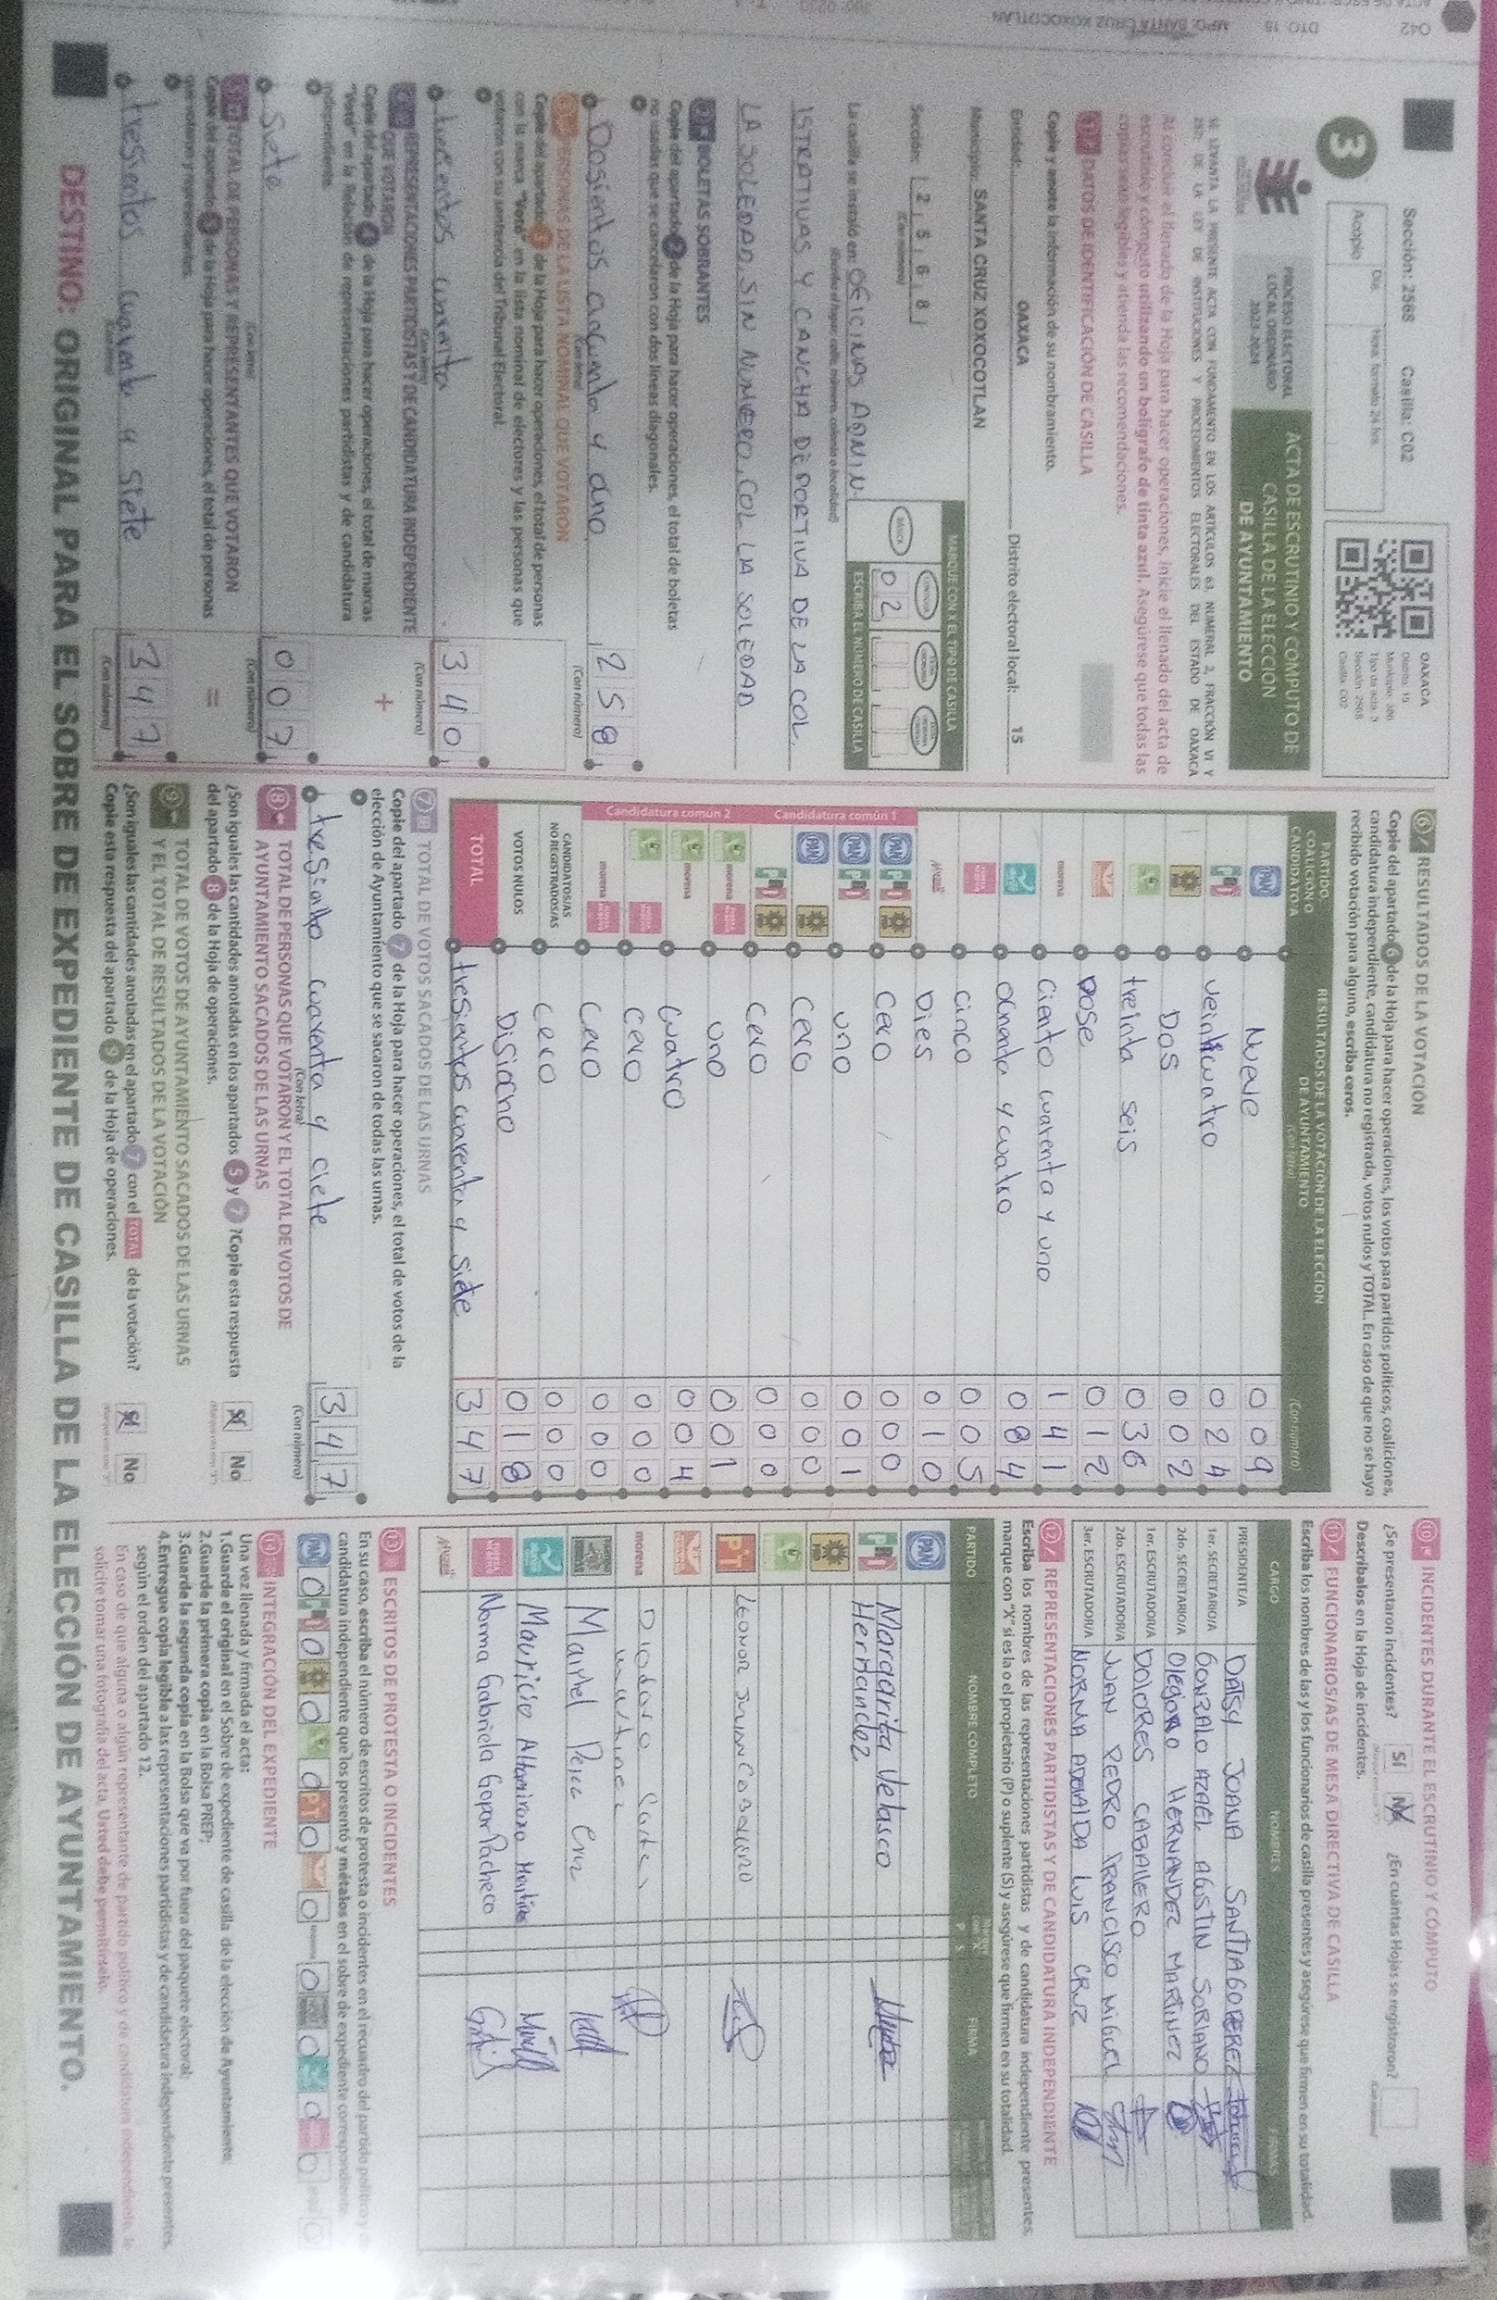 Sección: 2568 Casilla: C02
Día: Hora: formato 24 hrs.
Acopio
OAXACA
Distrito: 15
Tipo de acta: 3
Sección: 2568
Casilla: C02
3
PROCESO ELECTORAL
LOCAL ORDINARIO
2023-2024
ACTA DE ESCRUTINIO Y CÓMPUTO DE
CASILLA DE LA ELECCIÓN
DE AYUNTAMIENTO
SE LEVANTA LA PRESENTE ACTA CON FUNDAMENTO EN LOS ARTÍCULOS 63, NUMERAL 2, FRACCIÓN VI Y
237; DE LA LEY DE INSTITUCIONES Y PROCEDIMIENTOS ELECTORALES DEL ESTADO DE OAXACA
Al concluir el llenado de la Hoja para hacer operaciones, inicie el llenado del acta de
escrutinio y cómputo utilizando un bolígrafo de tinta azul. Asegúrese que todas las
copias sean legibles y atienda las recomendaciones.
1 DATOS DE IDENTIFICACIÓN DE CASILLA
Copie y anote la información de su nombramiento.
Entidad: OAXACA Distrito electoral local: 15
Municipio: SANTA CRUZ XOXOCOTLAN
Sección: 2 5 6 8
(Con número)
MARQUE CON X EL TIPO DE CASILLA
BÁSICA
0 2
ESCRIBA EL NÚMERO DE CASILLA
La casilla se instaló en: OFICINAS ADMIN-
(Escriba el lugar: calle, número, colonia o localidad)
ISTRATIVAS Y CANCHA DEPORTIVA DE LA COL.
LA SOLEDAD, SIN NUMERO, COL LA SOLEDAD
2 BOLETAS SOBRANTES
Copie del apartado 2 de la Hoja para hacer operaciones, el total de boletas
no usadas que se cancelaron con dos líneas diagonales.
2 5 8
(Con letra) (Con número)
3 PERSONAS DE LA LISTA NOMINAL QUE VOTARON
Copie del apartado 3 de la Hoja para hacer operaciones, el total de personas
con la marca "Votó" en la lista nominal de electores y las personas que
votaron con su sentencia del Tribunal Electoral.
3 4 0
(Con letra) (Con número)
4 REPRESENTACIONES PARTIDISTAS Y DE CANDIDATURA INDEPENDIENTE
QUE VOTARON
Copie del apartado 4 de la Hoja para hacer operaciones, el total de marcas
"Votó" en la Relación de representaciones partidistas y de candidatura
independiente.
+
siete 0 0 7
(Con letra) (Con número)
5 TOTAL DE PERSONAS Y REPRESENTANTES QUE VOTARON
Copie del apartado 5 de la Hoja para hacer operaciones, el total de personas
que votaron y representantes.
=
tresientos cuarenta y siete 3 4 7
(Con letra) (Con número)
6 RESULTADOS DE LA VOTACIÓN
Copie del apartado 6 de la Hoja para hacer operaciones, los votos para partidos políticos, coaliciones,
candidatura independiente, candidatura no registrada, votos nulos y TOTAL. En caso de que no se haya
recibido votación para alguno, escriba ceros.
PARTIDO, COALICIÓN O CANDIDATO/A
RESULTADOS DE LA VOTACIÓN DE LA ELECCIÓN DE AYUNTAMIENTO
(Con letra) (Con número)
PAN Nueve 0 0 9
PRI veinticuatro 0 2 4
PRD Dos 0 0 2
treinta seis 0 3 6
Dose 0 1 2
morena Ciento cuarenta y uno 1 4 1
ochenta y cuatro 0 8 4
cinco 0 0 5
Dies 0 1 0
Candidatura común 1
PAN PRI PRD Cero 0 0 0
PAN PRI uno 0 0 1
PAN PRD Cero 0 0 0
PRI PRD Cero 0 0 0
Candidatura común 2
morena uno 0 0 1
morena cuatro 0 0 4
Cero 0 0 0
morena Cero 0 0 0
CANDIDATOS/AS NO REGISTRADOS/AS cero 0 0 0
VOTOS NULOS Disiocho 0 1 8
TOTAL tresientos cuarenta y siete 3 4 7
7 TOTAL DE VOTOS SACADOS DE LAS URNAS
Copie del apartado 7 de la Hoja para hacer operaciones, el total de votos de la
elección de Ayuntamiento que se sacaron de todas las urnas.
cuarenta y ciete 3 4 7
(Con letra) (Con número)
8 TOTAL DE PERSONAS QUE VOTARON Y EL TOTAL DE VOTOS DE
AYUNTAMIENTO SACADOS DE LAS URNAS
¿Son iguales las cantidades anotadas en los apartados 5 y 7? Copie esta respuesta
del apartado 8 de la Hoja de operaciones.
Sí No
9 TOTAL DE VOTOS DE AYUNTAMIENTO SACADOS DE LAS URNAS
Y EL TOTAL DE RESULTADOS DE LA VOTACIÓN
¿Son iguales las cantidades anotadas en el apartado 7 con el TOTAL de la votación?
Copie esta respuesta del apartado 9 de la Hoja de operaciones.
Sí No
10 INCIDENTES DURANTE EL ESCRUTINIO Y CÓMPUTO
¿Se presentaron incidentes? Sí No ¿En cuántas Hojas se registraron?
Descríbalos en la Hoja de incidentes.
11 FUNCIONARIOS/AS DE MESA DIRECTIVA DE CASILLA
Escriba los nombres de las y los funcionarios de casilla presentes y asegúrese que firmen en su totalidad.
CARGO NOMBRES FIRMAS
PRESIDENTE/A DAISY JOANA SANTIAGO PEREZ
1er. SECRETARIO/A GONZALO AZAEL AGUSTIN SORIANO
2do. SECRETARIO/A HERNANDEZ MARTINEZ
1er. ESCRUTADOR/A DOLORES CABALLERO
2do. ESCRUTADOR/A JUAN PEDRO FRANCISCO MIGUEL
3er. ESCRUTADOR/A NORMA ADELAIDA LUIS CRUZ
12 REPRESENTACIONES PARTIDISTAS Y DE CANDIDATURA INDEPENDIENTE
Escriba los nombres de las representaciones partidistas y de candidatura independiente presentes,
marque con "X" si es la o el propietario (P) o suplente (S) y asegúrese que firmen en su totalidad.
PARTIDO NOMBRE COMPLETO P S FIRMA
PAN
PRI Margarita Velasco
Hernandez
PRD
PT LEONOR
morena
Cruz
Mauricio Altamirano
Norma Gabriela Gopar Pacheco
13 ESCRITOS DE PROTESTA O INCIDENTES
En su caso, escriba el número de escritos de protesta o incidentes en el recuadro del partido político y de
candidatura independiente que los presentó y métalos en el sobre de expediente correspondiente.
14 INTEGRACIÓN DEL EXPEDIENTE
Una vez llenada y firmada el acta:
1.Guarde el original en el Sobre de expediente de casilla de la elección de Ayuntamiento;
2.Guarde la primera copia en la Bolsa PREP;
3.Guarde la segunda copia en la Bolsa que va por fuera del paquete electoral;
4.Entregue copia legible a las representaciones partidistas y de candidatura independiente presentes,
según el orden del apartado 12.
En caso de que alguna o algún representante de partido político y de candidatura independiente, le
solicite tomar una fotografía del acta, Usted debe permitírselo.
DESTINO: ORIGINAL PARA EL SOBRE DE EXPEDIENTE DE CASILLA DE LA ELECCIÓN DE AYUNTAMIENTO.